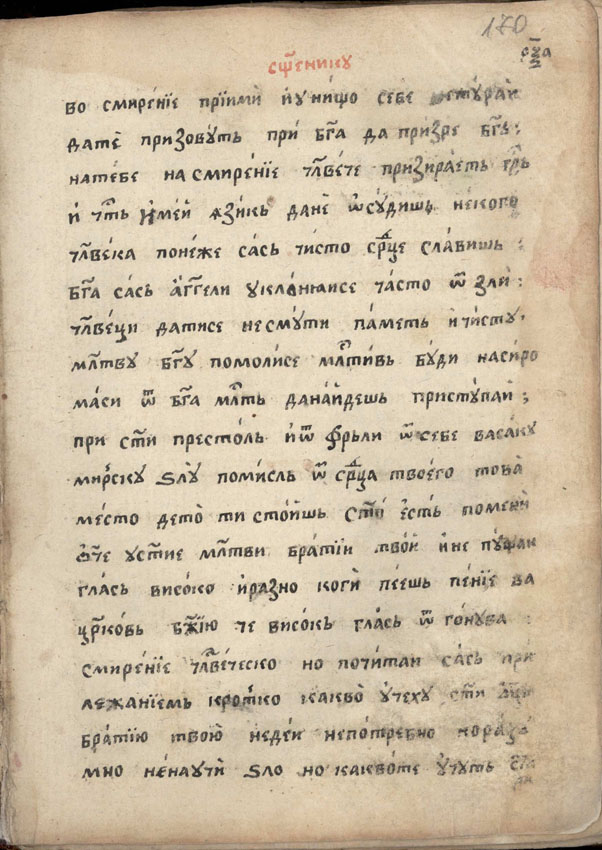 170
сщ҃енику
во смире́нїе прїими̂ и̂ у ни́що себе
дате̂ призову́ть при́ бг҃а да призре бг҃ъ:
на те́бе на смире́нїе чл҃ве́че призира́еть гд҃ь
и́ чт҃ь и̂ме́и̂ ꙗзи́кь да не̂ ѡ̂су́дишь не́кого
чл҃ве́ка поне́же сась чи́сто ср҃це сла́вишь:
бг҃а са́сь а́гг҃ели уклан҄юисе ча́сто ѿ зли̂:
чл҃ве́ци да ти се не смути па́меть и̂ чи́сту
мл҃тву бг҃у помоли́се мл҃ти́вь бу́ди на сиро
ма́си ѿ бг҃а мл҃ть да на́йдешь пристꙋпа́й;
при ст҃и́ престо́ль и̂ ѿ фрьли ѿ себе васаку
ми́рску ѕлу̀ поми́сль ѿ ср҃ца твоего това̀
ме́сто дето̀ ти сто́йшь ст҃о́ е́сть помени̂
ѻ҃че у́стние мл҃тви бра́тїи тво́и и не пу́щаи
гла́сь висо́ко и̂ ра́зно коги̂ пе́ешь пе́нїе ва
цр҃ко́вь бж҃їю че висо́кь гла́сь ѿ го́нува:
смире́нїе чл҃ве́ческо но почи́таи са́сь при
лежа́нїемь кро́тко какво̀ у́чеху ст҃и ѻ҃ци
бра́тїю твою̀ не де́и непотре́бно
мно не научи̂ ѕло но какво́те у́чуть